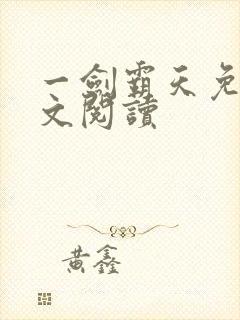 一劍霸天免
文閱讀
黃鑫